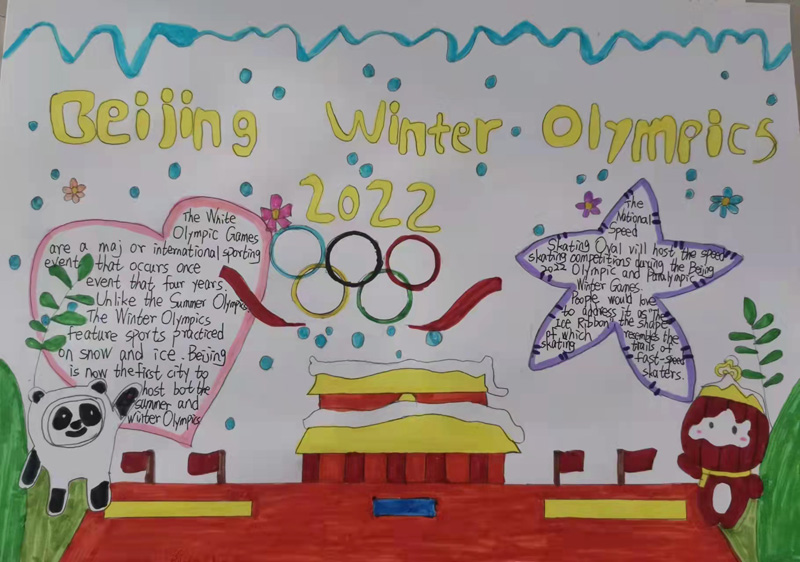 Beijing Winter Olympics
2022
The White
Olympic Games
are a maj or international sporting
event that occurs once
event that four years.
Unlike the Summer Olympics
The Winter Olympics
feature sports practiced
on snow and ice. Beijing
is now the first city to
host bot the
summer and
winter Olympics
The
National
Speed
Skating Oval will host the speed
skating competitions during the Beijing
2022 Olympic and Paralympic
Winter Games.
People would love
to address it as "The
Ice Ribbon" the shape
of which resembles the
skating trails of
fast-speed
skaters.